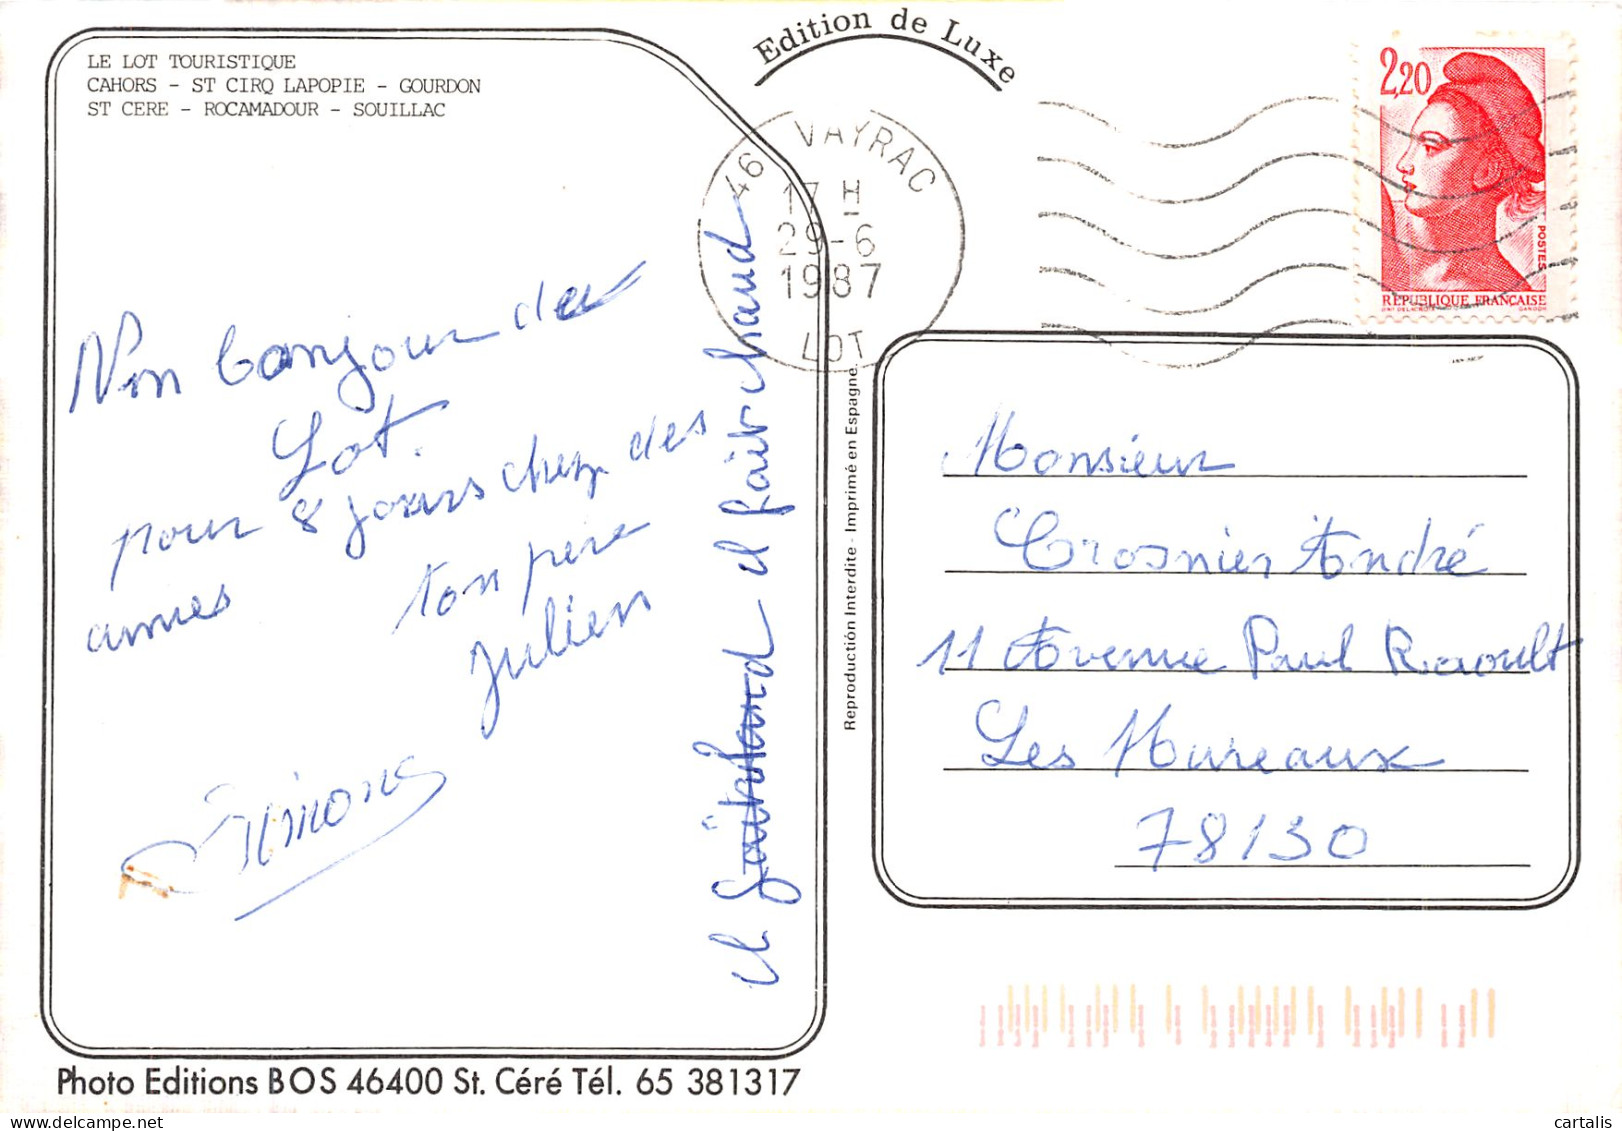 LE LOT TOURISTIQUE
CAHORS - ST CIRQ LAPOPIE - GOURDON
ST CERE - ROCAMADOUR - SOUILLAC
Edition de Luxe
46 VAYRAC
17 H
29-6
1987
LOT
2,20
POSTES
REPUBLIQUE FRANÇAISE
bonjour du
Lot.
pour 8 jours chez des
amies
ton pere
Julien
Simone
il fait chaud
Reproduction Interdite - Imprimé en Espagne
Monsieur
Crosnier André
11 Avenue Paul Raoult
Les Mureaux
78130
Photo Editions BOS 46400 St. Céré Tél. 65 381317
cartalis